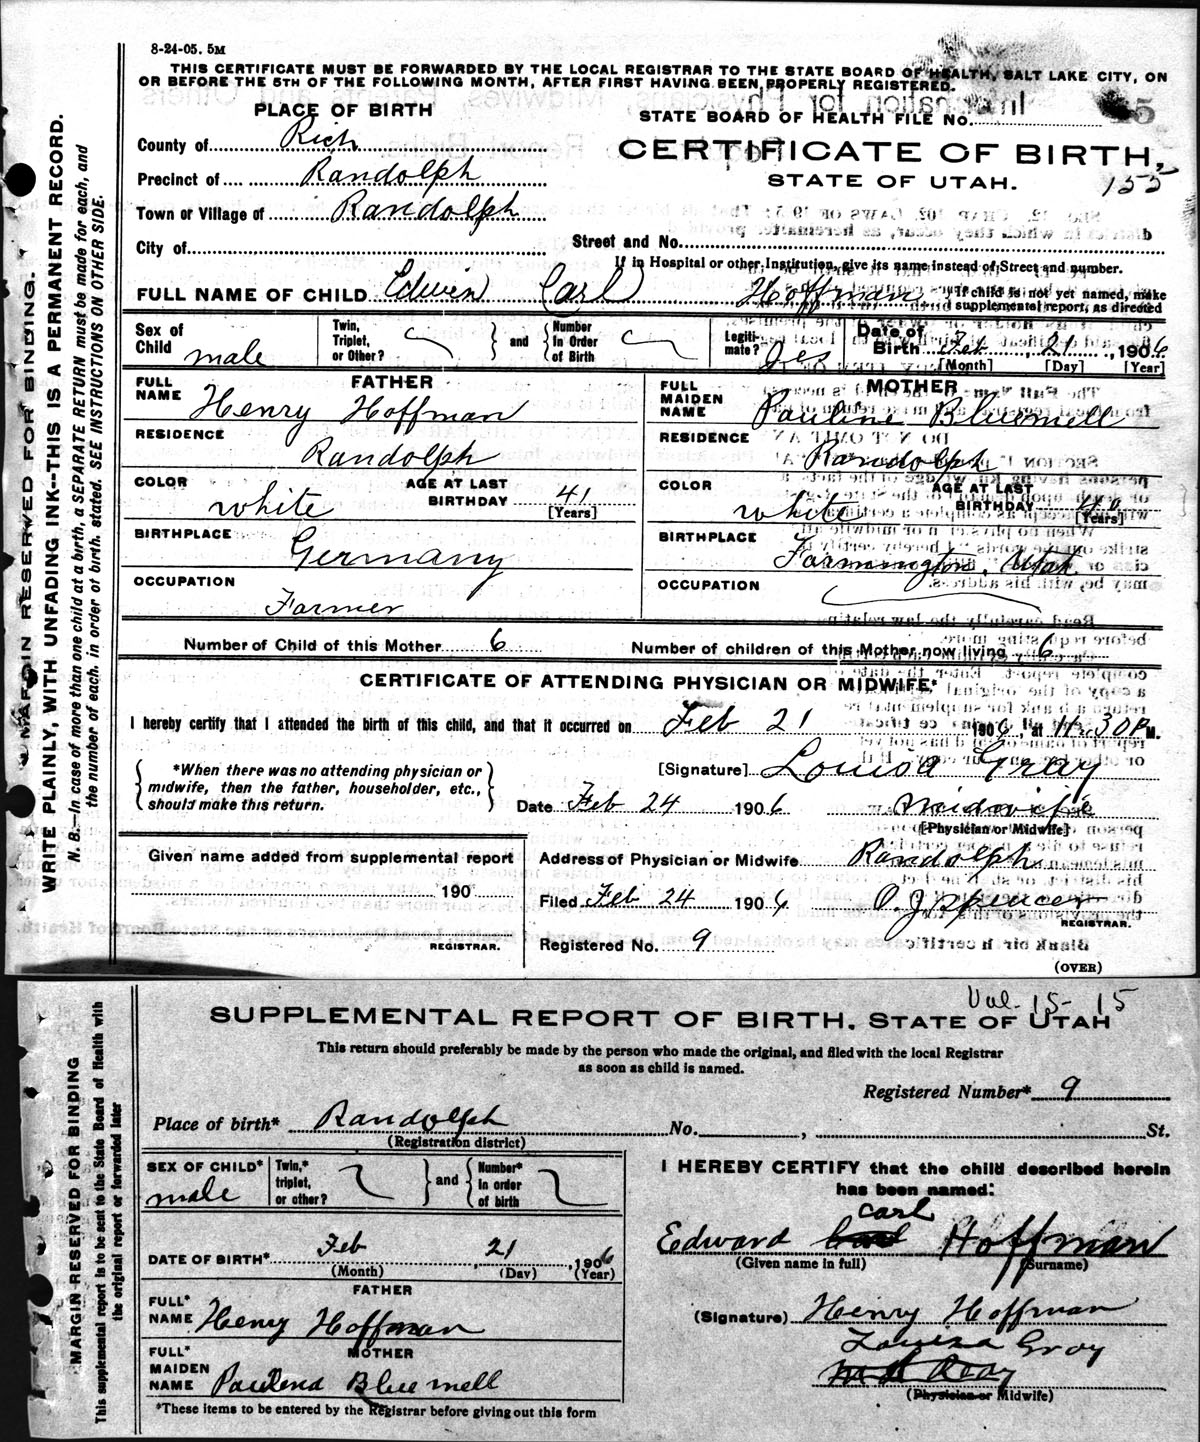 8-24-05. 5M
THIS CERTIFICATE MUST BE FORWARDED BY THE LOCAL REGISTRAR TO THE STATE BOARD OF HEALTH, SALT LAKE CITY, ON
OR BEFORE THE 5TH OF THE FOLLOWING MONTH, AFTER FIRST HAVING BEEN PROPERLY REGISTERED.
PLACE OF BIRTH
STATE BOARD OF HEALTH FILE No.
County of Rich
CERTIFICATE OF BIRTH,
Precinct of Randolph
STATE OF UTAH. 155
Town or Village of Randolph
City of Street and No.
If in Hospital or other Institution, give its name instead of Street and number.
FULL NAME OF CHILD Edwin Carl Hoffman
If child is not yet named, make
supplemental report, as directed
Sex of Child male
Twin, Triplet, or Other?
and
Number In Order of Birth
Legiti-mate? Yes
Date of Birth Feb, 21, 1906
[Month] [Day] [Year]
FATHER
FULL NAME Henry Hoffman
RESIDENCE
Randolph
COLOR white
AGE AT LAST BIRTHDAY 41
[Years]
BIRTHPLACE
Germany
OCCUPATION
Farmer
MOTHER
FULL MAIDEN NAME Pauline Bluemell
RESIDENCE
Randolph
COLOR white
AGE AT LAST BIRTHDAY 40
[Years]
BIRTHPLACE
Farmington, Utah
OCCUPATION
Number of Child of this Mother 6 Number of children of this Mother now living 6
CERTIFICATE OF ATTENDING PHYSICIAN OR MIDWIFE*
I hereby certify that I attended the birth of this child, and that it occurred on Feb 21 1906, at 11:30 P M.
*When there was no attending physician or
midwife, then the father, householder, etc.,
should make this return.
[Signature] Louisa Gray
Date Feb 24 1906 midwife
[Physician or Midwife]
Given name added from supplemental report
190
REGISTRAR.
Address of Physician or Midwife Randolph
Filed Feb 24 1906 O. J. Spencer
REGISTRAR.
Registered No. 9
(OVER)
MARGIN RESERVED FOR BINDING.
WRITE PLAINLY, WITH UNFADING INK--THIS IS A PERMANENT RECORD.
N. B.—In case of more than one child at a birth, a SEPARATE RETURN must be made for each, and
the number of each, in order of birth, stated. SEE INSTRUCTIONS ON OTHER SIDE.
Vol. 15- 15
SUPPLEMENTAL REPORT OF BIRTH. STATE OF UTAH
This return should preferably be made by the person who made the original, and filed with the local Registrar
as soon as child is named.
Registered Number* 9
Place of birth* Randolph No. , St.
(Registration district)
SEX OF CHILD* male
Twin,* triplet, or other?
and
Number* in order of birth
DATE OF BIRTH* Feb, 21, 1906
(Month) (Day) (Year)
FATHER
FULL* NAME Henry Hoffman
MOTHER
FULL* MAIDEN NAME Paulena Bluemell
*These items to be entered by the Registrar before giving out this form
I HEREBY CERTIFY that the child described herein
has been named:
Carl
Edward Hoffman
(Given name in full) (Surname)
(Signature) Henry Hoffman
Louisa Gray
(Physician or Midwife)
MARGIN RESERVED FOR BINDING
This supplemental report is to be sent to the State Board of Health with
the original report or forwarded later